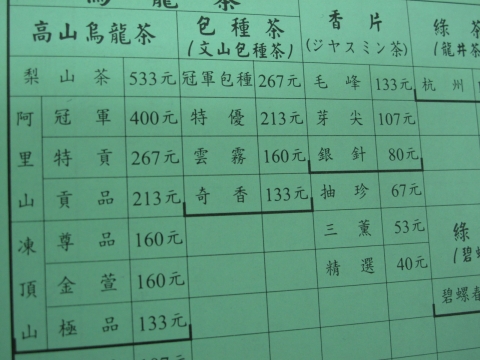 烏龍茶 包種茶 香片 綠茶
高山烏龍茶 (文山包種茶) (ジヤスミン茶) (龍井茶
梨山茶 533元 冠軍包種 267元 毛峰 133元 杭州
阿里山 冠軍 400元 特優 213元 芽尖 107元
特貢 267元 雲霧 160元 銀針 80元
貢品 213元 奇香 133元 抽珍 67元
凍頂山 尊品 160元 三薰 53元 綠
金萱 160元 精選 40元 (碧
極品 133元 碧螺春